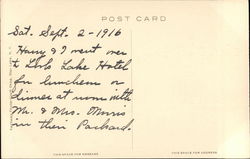 POST CARD
Sat. Sept. 2-1916
Harry & I went over
to Lake Hotel
for luncheon or
dinner at noon with
Mr. & Mrs. Morris
in their Packard.
THIS SPACE FOR ADDRESS